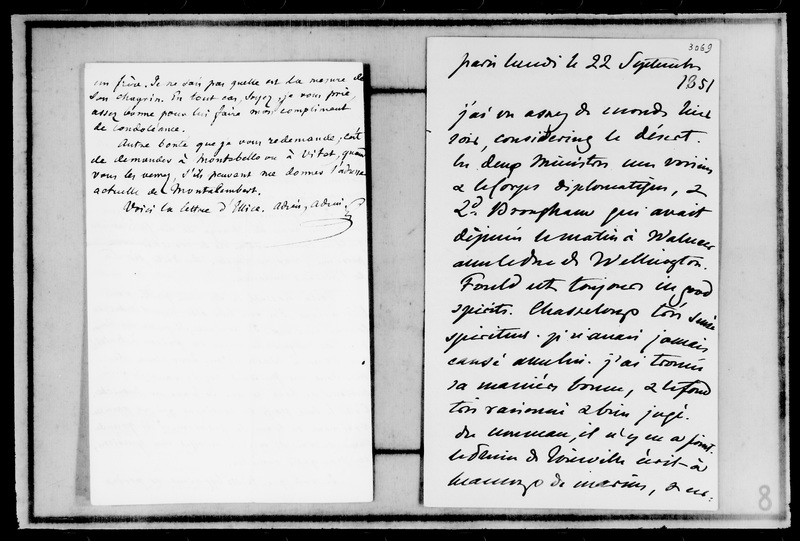 un frère. Je ne sais pas quelle est la mesure de
son chagrin. En tout cas, soyez, je vous prie,
assez bonne pour lui faire mon compliment
de condoléance.
Autre bonté que je vous redemande; c'est
de demander à Montebello ou à Vitet, quand
vous les verrez, s'ils peuvent me donner l'adresse
actuelle de Montalembert.
Voici la lettre d'Ellice. Adieu, Adieu.
3069
paris lundi le 22 Septembre
1851
j'ai vu assez de monde hier
soir, considering le désert.
les deux Ministres mes voisins
& le Corps diplomatique, &
Ld. Brougham qui avait
déjeuné le matin à Walmer
avec le duc de Wellington.
Fould est toujours in good
spirits. Chasseloup très
spirituel. je n'avais jamais
causé avec lui. j'ai trouvé
sa manière bonne, & le fond
très raisonné & bien jugé.
du nouveau, il n'y en a point.
le Prince de Joinville écrit à
beaucoup de marins, & ne
8